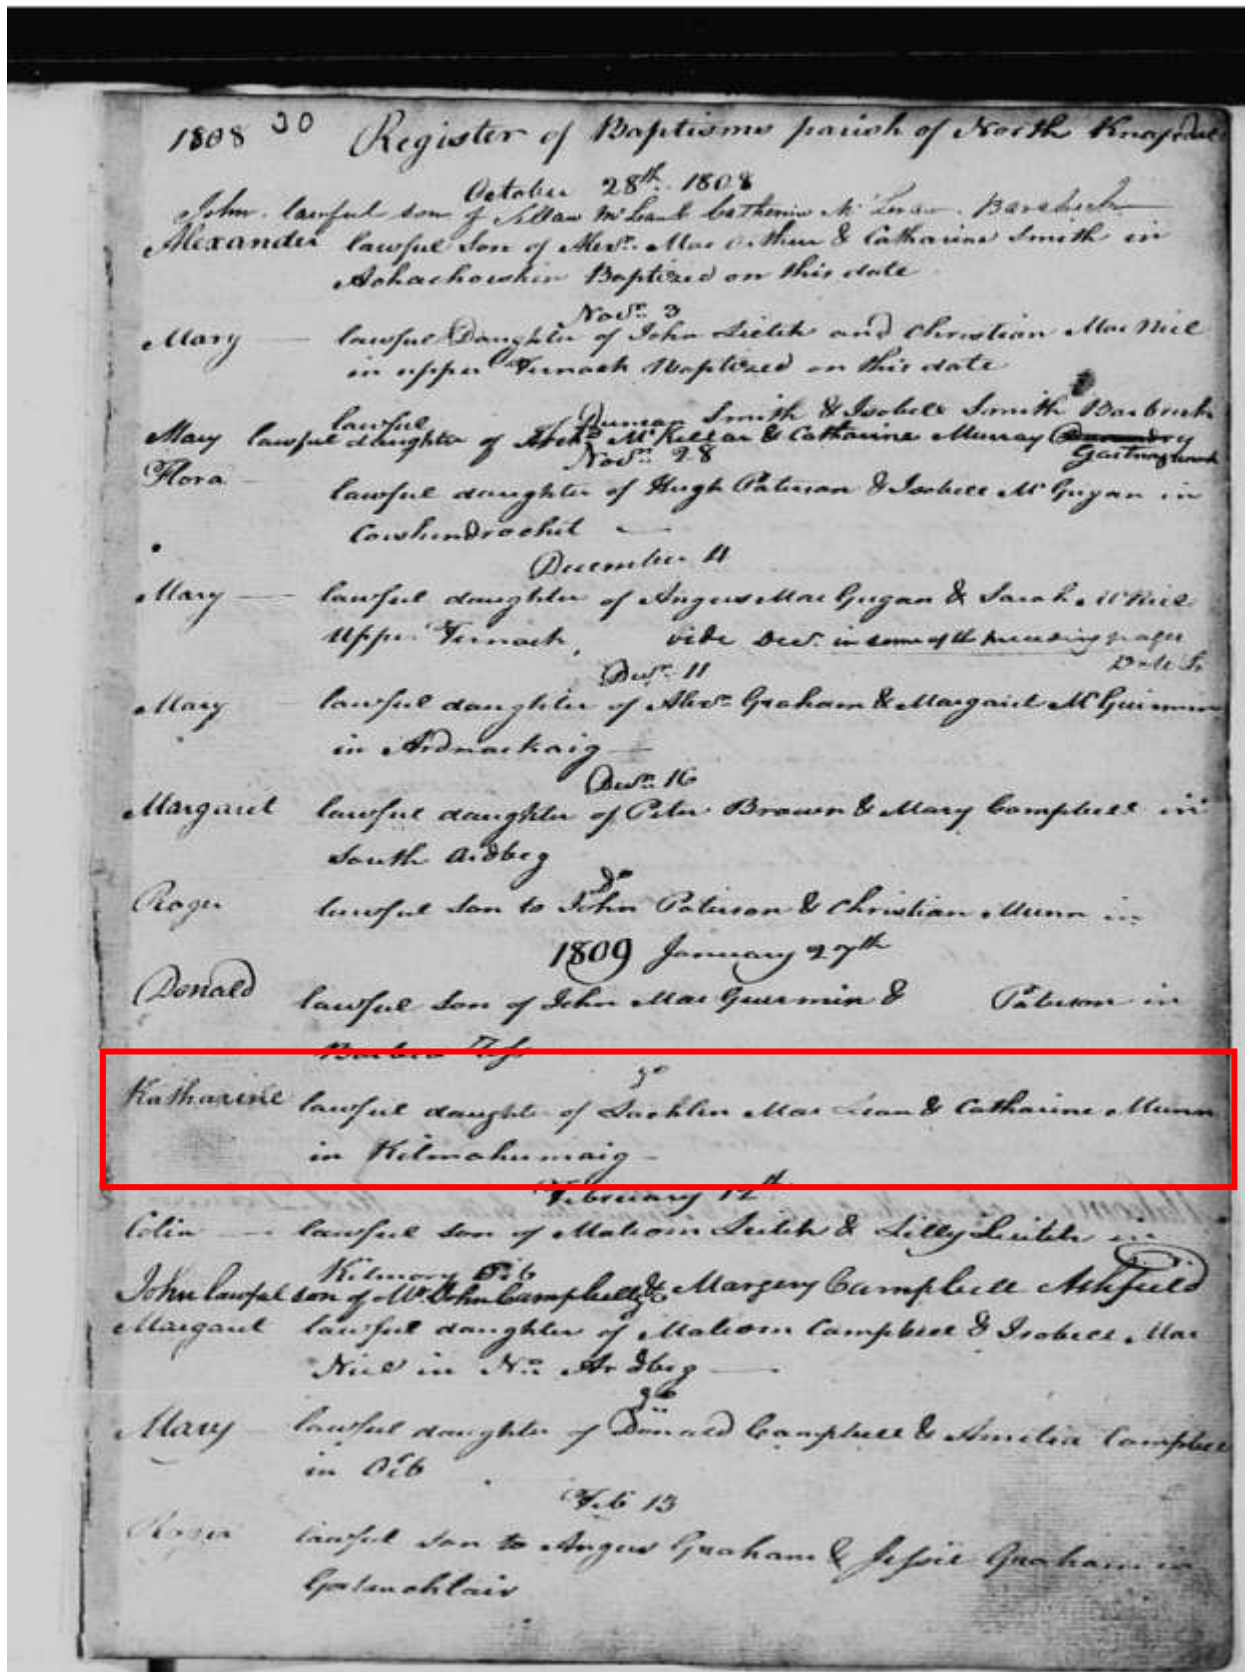 1808 30 Register of Baptisms parish of North Knapdale
October 28th 1808
John lawful son of Catherine
Alexander lawful Son of Alexr. Mac Arthur & Catharine Smith in
Baptized on this date
Novr. 3
Mary lawful Daughter of John Leitch and Christian Mac Niel
in upper Fernoch Baptized on this date
lawful Duncan Smith & Isobell Smith
Mary lawful daughter of Archd. McKellar & Catharine Murray
Novr. 28
Flora
lawful daughter of Hugh Paterson & Isobell McGugan in
December 11
Mary lawful daughter of Angus Mac Gugan & Sarah McNiel
Upper Fernoch, vide Decr. in some of the preceeding pages
Decr. 11
Mary lawful daughter of Alexr. Graham & Margaret
in Ardnackaig
Decr. 16
Margaret lawful daughter of Peter Brown & Mary Campbell in
South Ardbeg
Do
Roger lawful Son to John Paterson & Christian Munn in
1809 January 27th
Donald lawful Son of John Mac Guirmin & Paterson in
Do
Katharine lawful daughter of Lachlin Mac Lean & Catharine Munn
in Kilmahumaig
February 12th
Colin lawful son of Malcom Leitch & Lilly Leitch in
Kilmory Oib
John lawful son of Mr. John Campbell & Margery Campbell Ashfield
Margaret lawful daughter of Malcom Campbell & Isobell Mac
Niel in No. Ardbeg
Do
Mary lawful daughter of Donald Campbell & Amelia Campbell
in Oib
Feb 13
lawful son to Angus Graham & Jessie Graham in